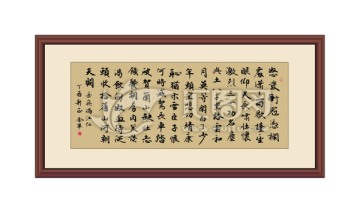 怒髮衝冠憑欄
處瀟瀟雨歇擡望
眼仰天長嘯壯懷
激烈三十功名塵
與土八千里路雲和
月莫等閒白少
年頭空悲切靖康
恥猶未雪臣子恨
何時滅駕長車踏
破賀蘭山缺壯志
饑餐胡虜肉笑談
渴飲匈奴血待從
頭收拾舊山河朝
天闕
丁酉新正